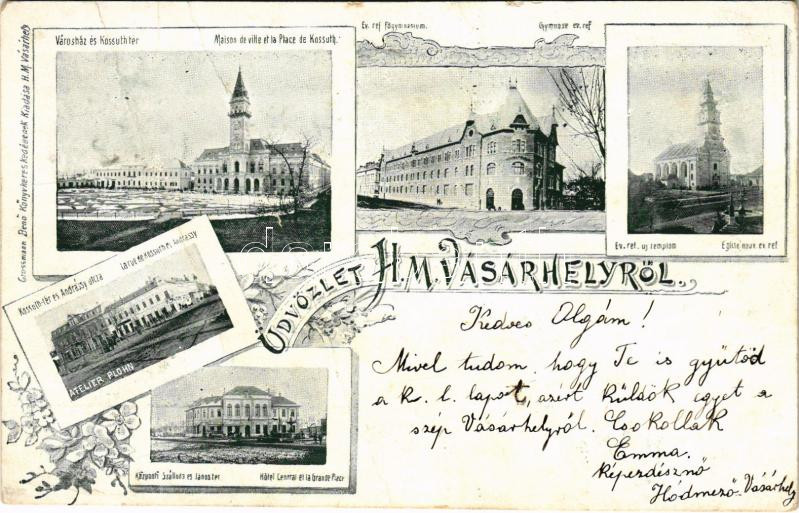 Városház és Kossuth tér Maison de ville et la Place de Kossuth.
Ev. ref főgymnasium. Gymnase ev. ref
Ev. ref. uj templom Eglise nouv. ev ref
Grossmann Benő Könyvkereskedésének Kiadása H. M. Vásárhely
Kossuth-tér és Andrássy utcza La rue de Kossuth et Andrássy
ATELIER PLOHN
Központi Szálloda és János tér Hôtel Central et la Grande Place
ÜDVÖZLET H.M. VÁSÁRHELYRŐL.
Kedves Olgám!
Mivel tudom, hogy Te is gyűtöd
a k. l. lapot, azért küldök egyet a
szép Vásárhelyről. Csokollak
Emma.
Hódmező-Vásárhely